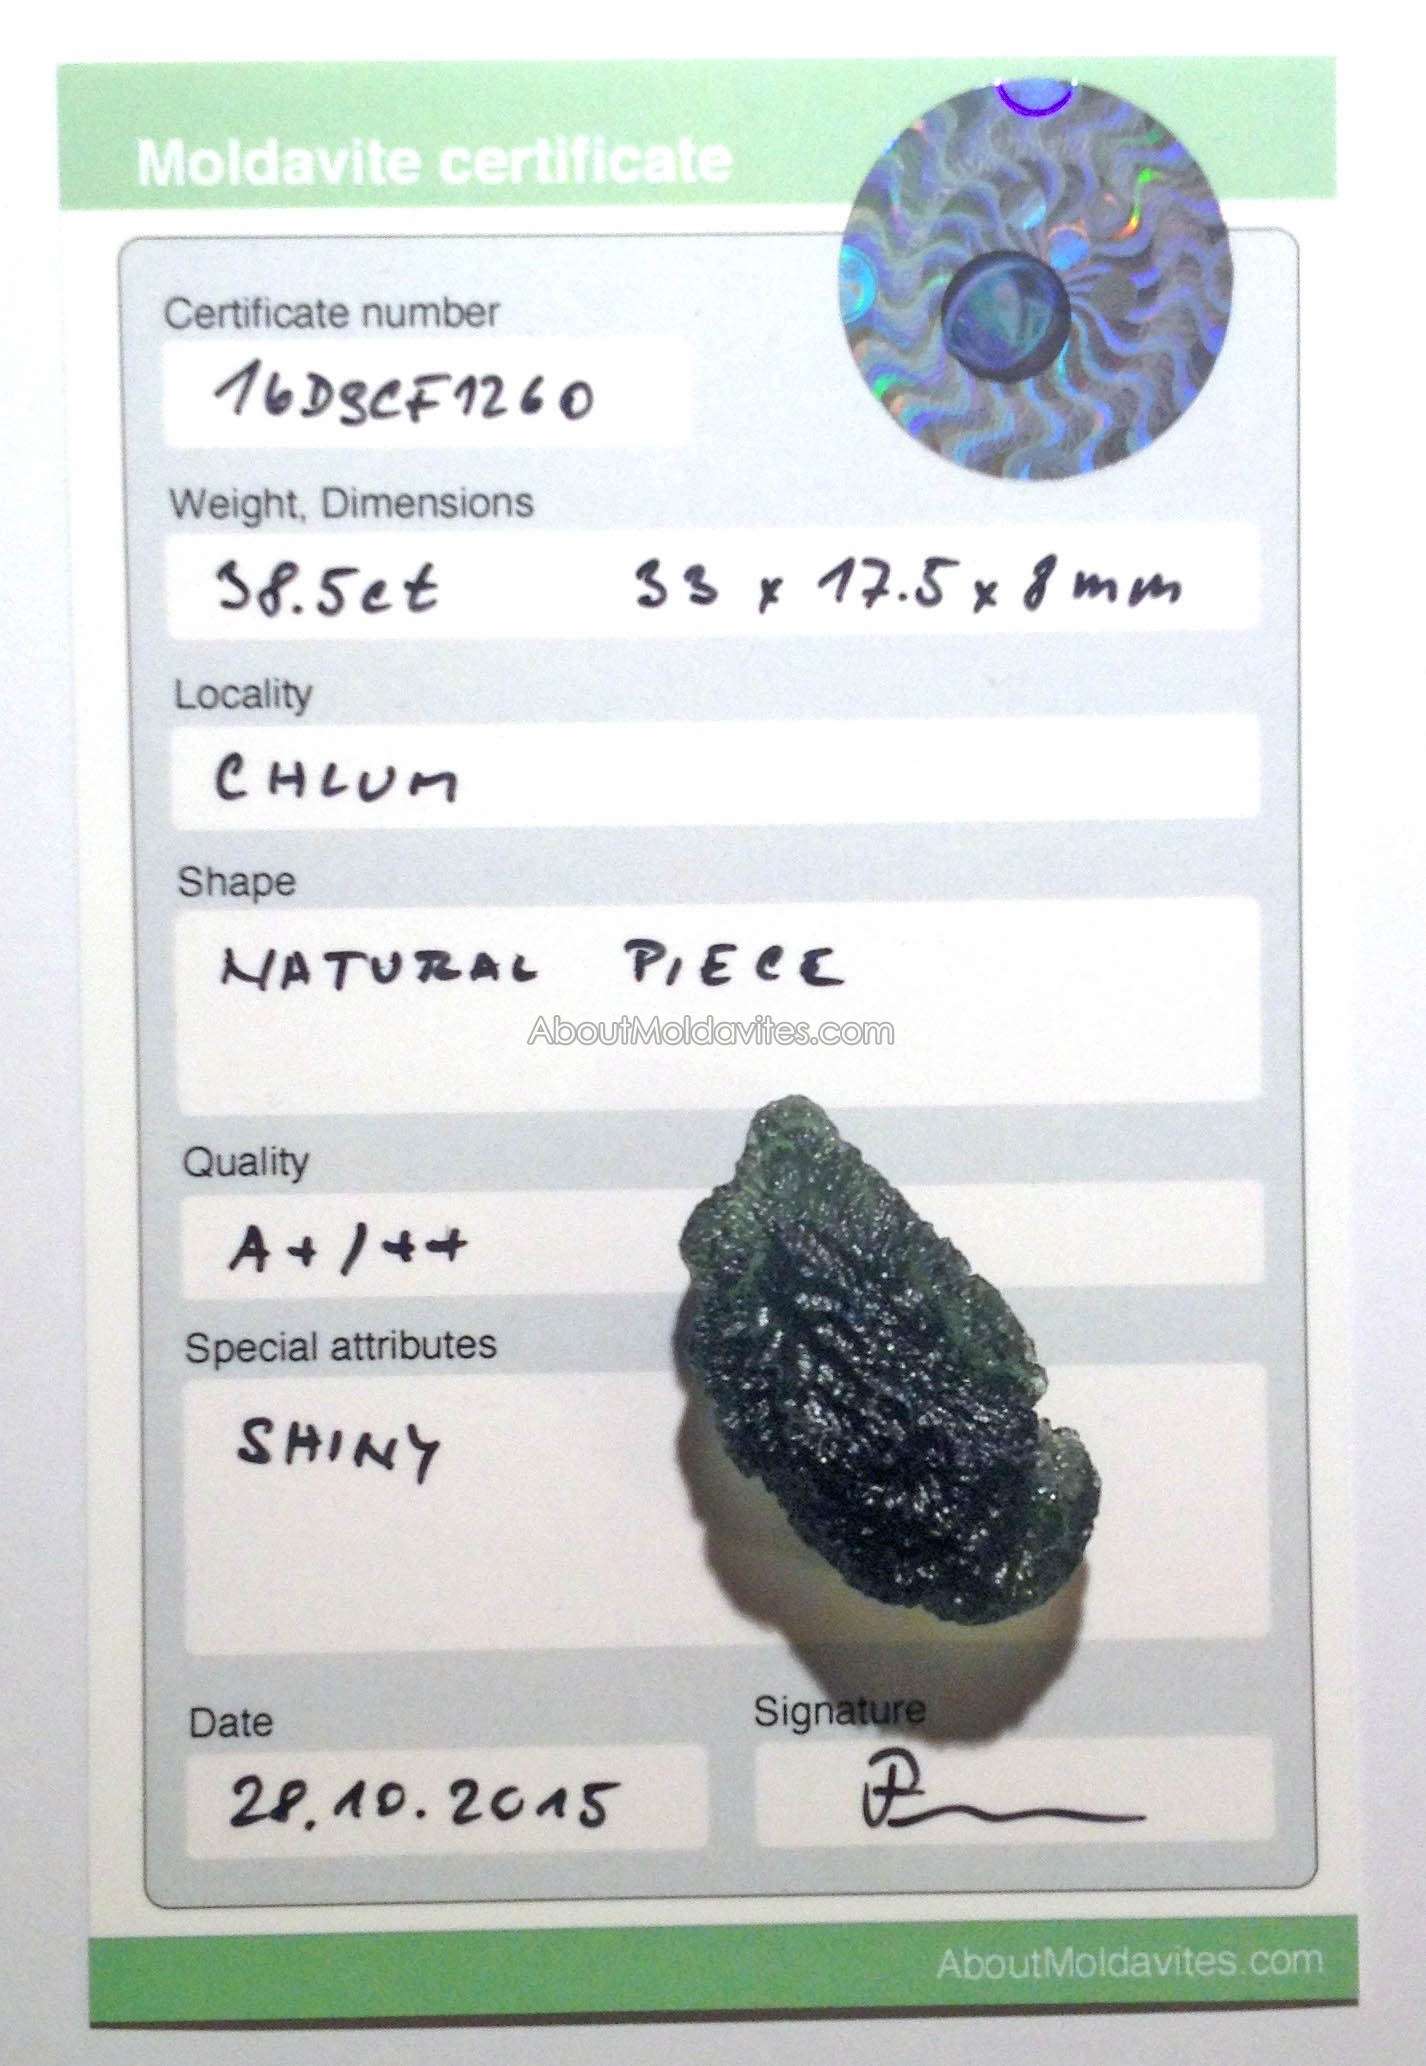 Moldavite certificate
Certificate number
16D9CF1260
Weight, Dimensions
38.5ct 33 x 17.5 x 8mm
Locality
CHLUM
Shape
NATURAL PIECE
AboutMoldavites.com
Quality
A+/++
Special attributes
SHINY
Date Signature
28.10.2015
AboutMoldavites.com